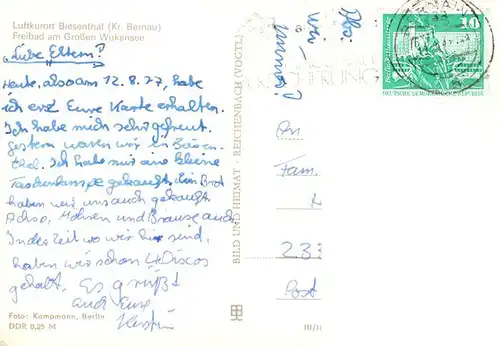 Luftkurort Biesenthal (Kr. Bernau)
Freibad am Großen Wukensee
Liebe Eltern!
Heute, also am 12.8.77, habe
ich erst Eure Karte erhalten.
Ich habe mich sehr gefreut.
Gestern waren wir in Biesen-
thal. Ich habe mir eine kleine
Taschenlampe gekauft. Ein Brot
haben wir uns auch gekauft
Achso, Möhren und Brause auch.
In der Zeit wo wir hier sind,
haben wir schon 4 Discos
gehabt. Es grüßt
auch Eure
Kerstin
Foto: Kampmann, Berlin
DDR 0,25 M
BILD UND HEIMAT · REICHENBACH (VOGTL)
III/1
Abs.
10
DEUTSCHE DEMOKRATISCHE REPUBLIK
An
Fam.
23
Post